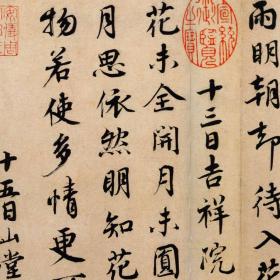 雨明朝却待入
十三日吉祥院
花未全開月未圓
月思依然明知花
物若使多情更
十五日山堂
宣統御覽之寶